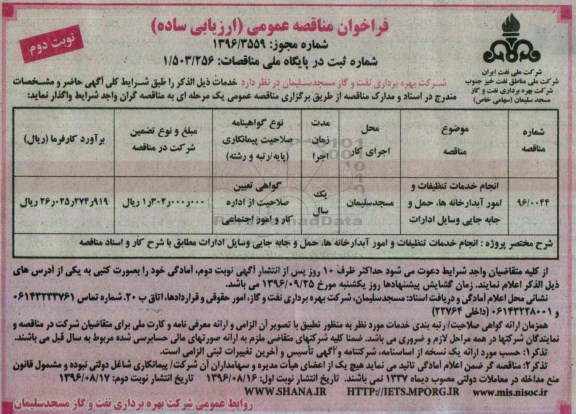 فراخوان مناقصه عمومی (ارزیابی ساده)
نوبت دوم
شماره مجوز: ۱۳۹۶/۳۵۵۹
شماره ثبت در پایگاه ملی مناقصات: ۱/۵۰۳/۲۵۶
شرکت ملی نفت ایران
شرکت ملی مناطق نفت خیز جنوب
شرکت بهره برداری نفت و گاز
مسجد سلیمان (سهامی خاص)
شرکت بهره برداری نفت و گاز مسجدسلیمان در نظر دارد خدمات ذیل الذکر را طبق شرایط کلی آگهی حاضر و مشخصات
مندرج در اسناد و مدارک مناقصه از طریق برگزاری مناقصه عمومی یک مرحله ای به مناقصه گران واجد شرایط واگذار نماید:
شماره مناقصه
موضوع مناقصه
محل اجرای کار
مدت زمان اجرا
نوع گواهینامه صلاحیت پیمانکاری (پایه/رتبه و رشته)
مبلغ و نوع تضمین شرکت در مناقصه
برآورد کارفرما (ریال)
۹۶/۰۰۴۴
انجام خدمات تنظیفات و امور آبدارخانه ها، حمل و جابه جایی وسایل ادارات
مسجدسلیمان
یک سال
گواهی تعیین صلاحیت از اداره کار و امور اجتماعی
۱٫۳۰۲٫۰۰۰٫۰۰۰ ریال
۲۶٫۰۲۵٫۲۷۴٫۹۱۹ ریال
شرح مختصر پروژه : انجام خدمات تنظیفات و امور آبدارخانه ها، حمل و جابه جایی وسایل ادارات مطابق با شرح کار و اسناد مناقصه
از کلیه متقاضیان واجد شرایط دعوت می شود حداکثر ظرف ۱۰ روز پس از انتشار آگهی نوبت دوم، آمادگی خود را بصورت کتبی به یکی از آدرس های
ذیل الذکر اعلام نمایند. زمان گشایش پیشنهادها روز یکشنبه مورخ ۱۳۹۶/۰۹/۲۵ می باشد.
نشانی محل اعلام آمادگی و دریافت اسناد: مسجدسلیمان، شرکت بهره برداری نفت و گاز، امور حقوقی و قراردادها، اتاق ب ۲۰، شماره تماس ۰۶۱۴۳۲۳۳۷۶۱
و ۰۶۱۴۳۲۲۸۰۰۱ (داخلی ۲۲۷۶۴)
همزمان ارائه گواهی صلاحیت/ رتبه بندی خدمات مورد نظر به منظور تطبیق با تصویر آن الزامی و ارائه معرفی نامه و کارت ملی برای متقاضیان شرکت در مناقصه و
نمایندگان شرکتها در همه مراحل لازم و ضروری می باشد. ضمنا کلیه شرکتهای متقاضی ملزم به ارائه صورتهای مالی حسابرسی شده مربوط به سال قبل می باشند.
تذکر۱: حسب مورد ارائه یک نسخه از اساسنامه، شرکتنامه و آگهی تأسیس و آخرین تغییرات ثبتی الزامی است.
تذکر۲: مناقصه گر ضمن اعلام آمادگی تائید می نماید هیچ یک از اعضای هیأت مدیره و سهامداران آن شرکت/ پیمانکاری شاغل دولتی نبوده و مشمول قانون
منع مداخله در معاملات دولتی مصوب دیماه ۱۳۳۷ نمی باشند. تاریخ انتشار نوبت اول: ۱۳۹۶/۰۸/۱۶ تاریخ انتشار نوبت دوم: ۱۳۹۶/۰۸/۱۷
www.mis.nisoc.ir HTTP://IETS.MPORG.IR WWW.SHANA.IR
روابط عمومی شرکت بهره برداری نفت و گاز مسجدسلیمان